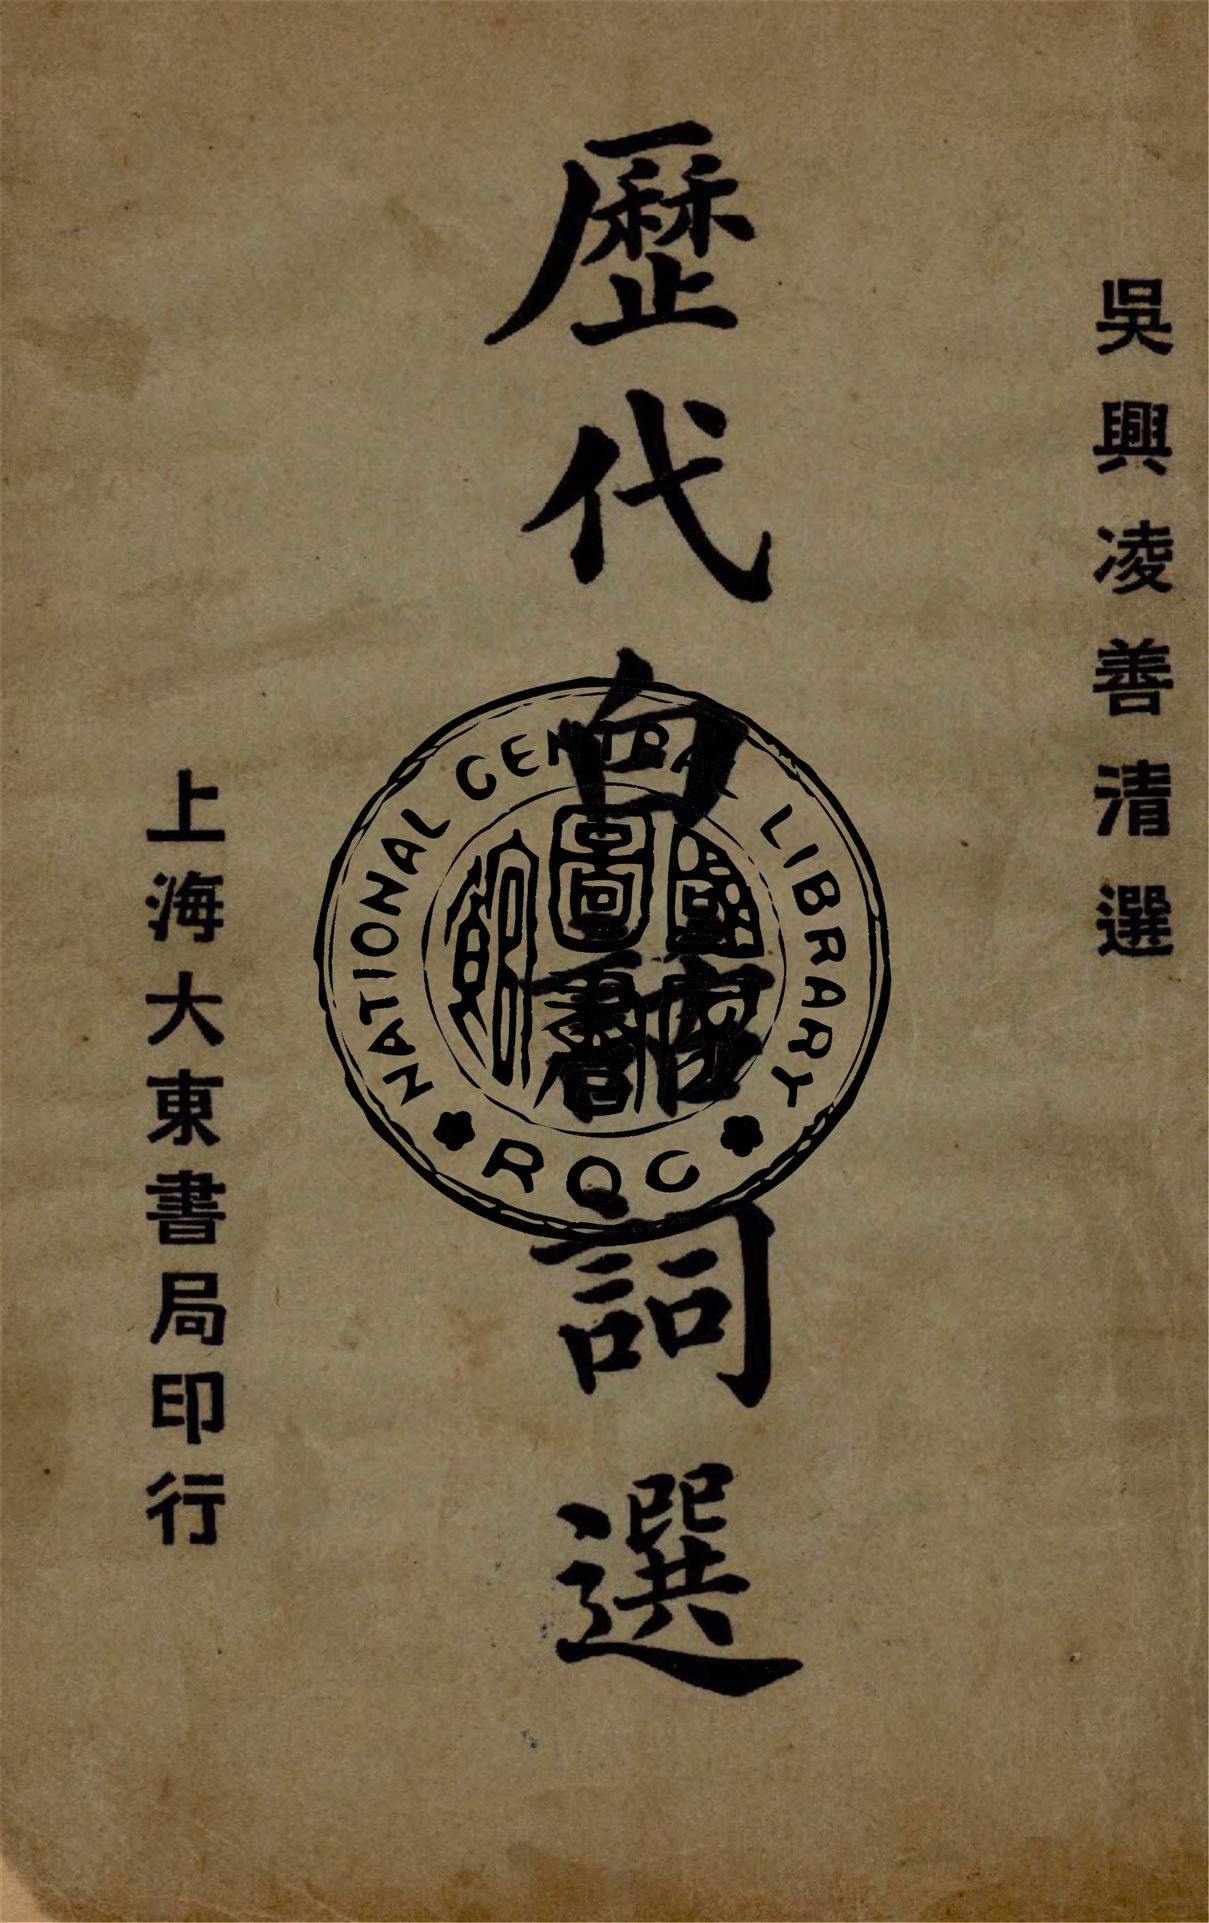 吳興凌善清選
歷代白話詞選
上海大東書局印行
NATIONAL CENTRAL LIBRARY
ROC
國家
圖書
館